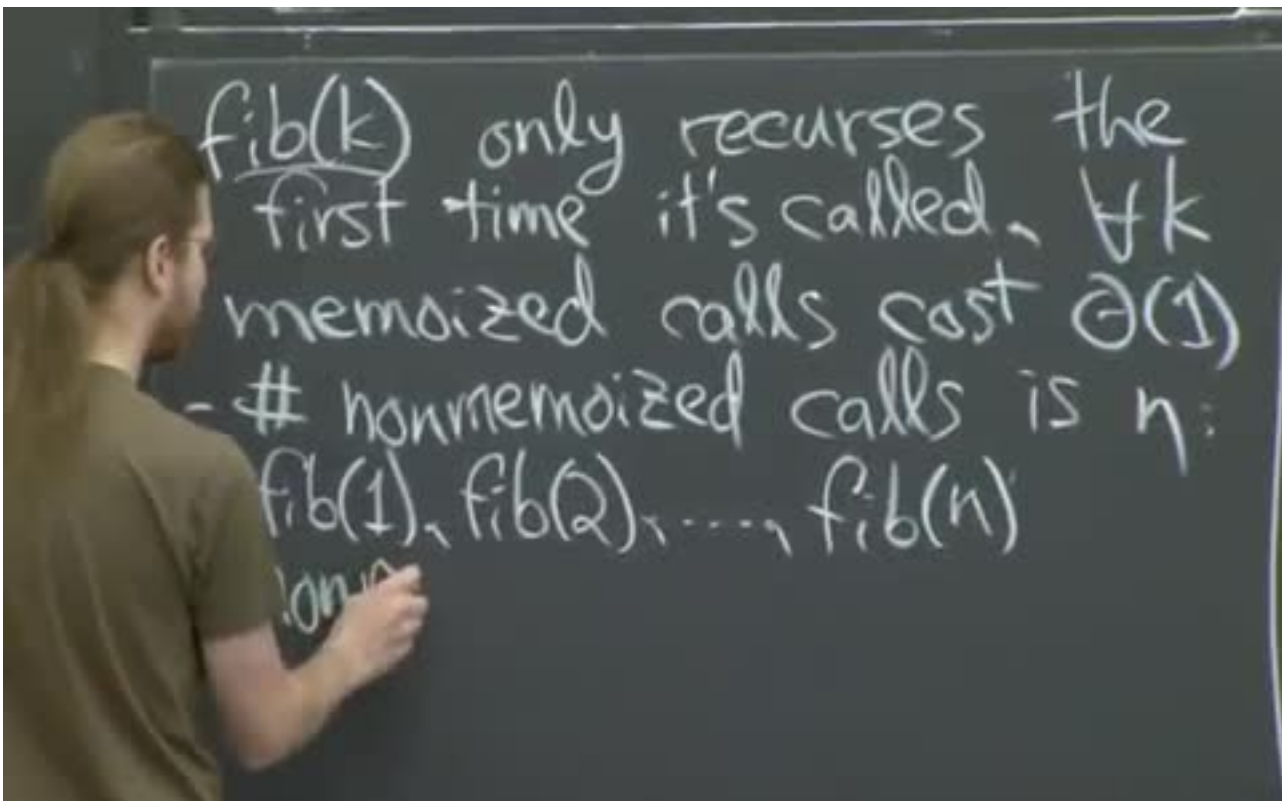 fib(k) only recurses the
first time it's called, ∀k
memoized calls cost Θ(1)
- # nonmemoized calls is n:
fib(1), fib(2), ..., fib(n)